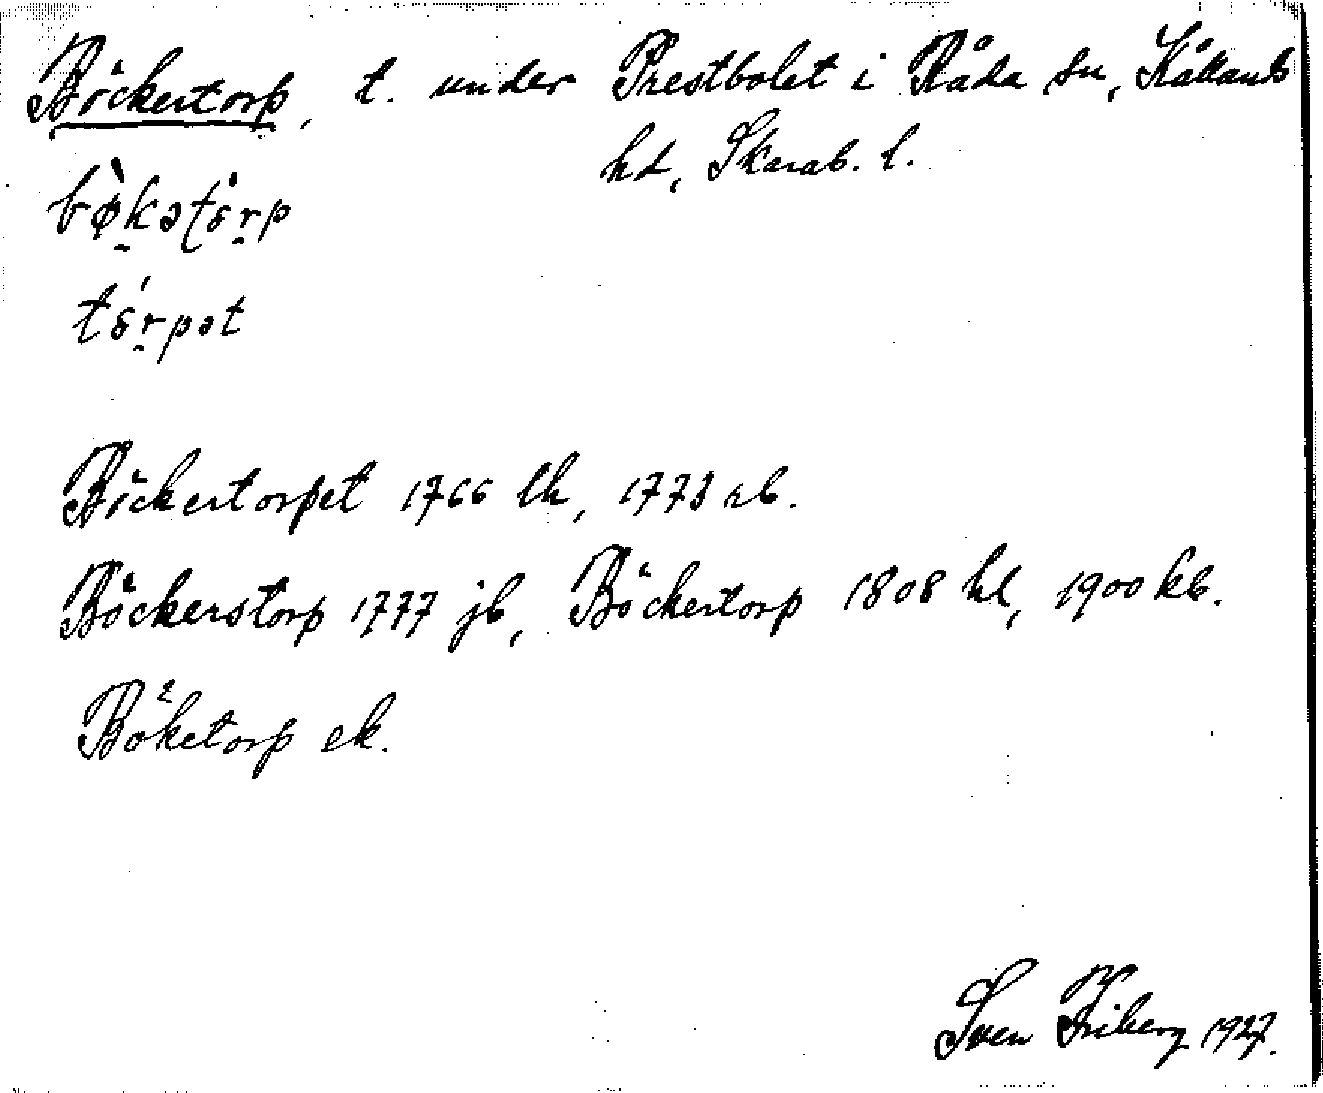 Böckertorp, t. under Prestbolet i Råda sn, Kållands
hd, Skarab. l.
bø̀kətɔrp
tɔ́rpət
Böckertorpet 1766 lk, 1773 ab.
Böckerstorp 1777 jb, Böckertorp 1808 hl, 1900 kb.
Böketorp ek.
Sven Friberg 1927.